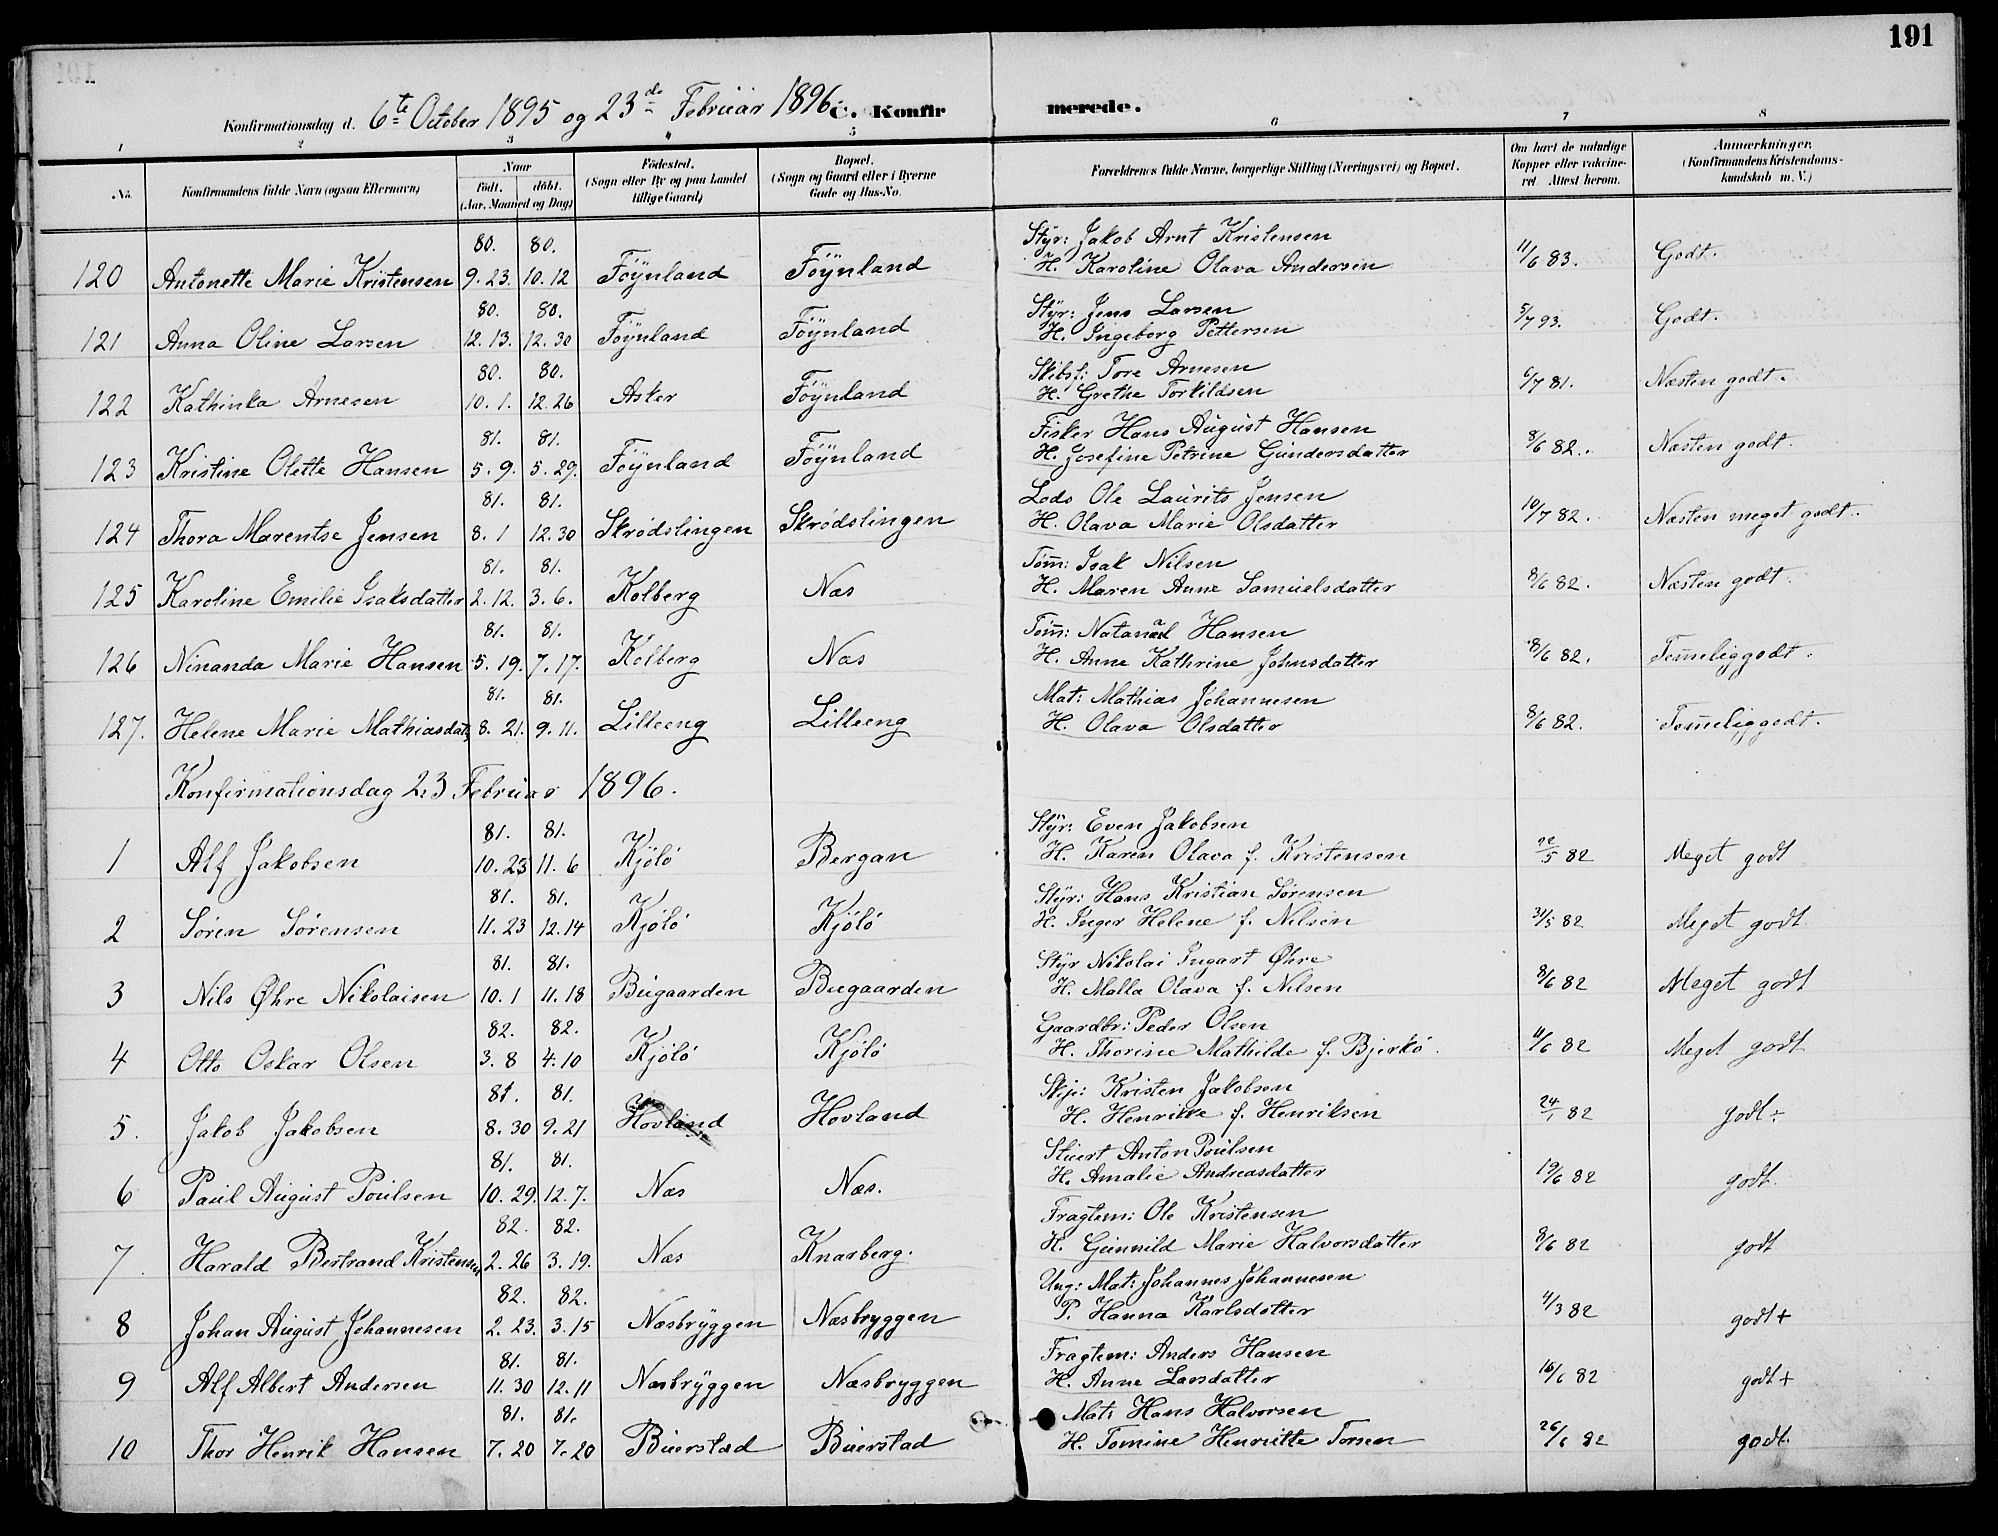 191
Konfirmationsdag d. 6te October 1895 og 23de Februar 1896 C. Konfirmerede.
1 2 3 4 5 6 7 8
No. Konfirmandens fulde Navn (ogsaa Efternavn) Naar født. døbt. (Aar, Maaned og Dag) Födested. (Sogn eller By og paa Landet tillige Gaard) Bopæl. (Sogn og Gaard eller i Byerne Gade og Hus-No. Forældrenes fulde Navne, borgerlige Stilling (Næringsvei) og Bopæl. Om havt de naturlige Kopper eller vakcineret. Attest herom. Anmærkninger. (Konfirmandens Kristendomskundskab m. V.)
80. 80. Styr: Jakob Arnt Kristensen
120 Antonette Marie Kristensen 9. 23. 10. 12 Föynland Föynland H. Karoline Olava Andersen 11/6 83. Godt.
80. 80. Styr: Jens Larsen
121 Anna Oline Larsen 12. 13. 12. 30 Föynland Föynland H. Ingeborg Pettersen 5/7 93. Godt.
80. 80. Skibst: Tore Arnesen
122 Kathinka Arnesen 10. 1. 12. 26 Asker Föynland H. Grethe Torkildsen 6/7 81. Næsten godt.
81. 81. Fisker Hans August Hansen
123 Kristine Olette Hansen 5. 9. 5. 29. Föynland Föynland H. Josefine Petrine Gundersdatter 8/6 82. Næsten godt.
81. 81. Lods Ole Laurits Jensen
124 Thora Marentse Jensen 8. 1 12. 30 Skrödslingen Skrödslingen H. Olava Marie Olsdatter 10/7 82. Næsten meget godt.
81. 81. Töm: Isak Nilsen
125 Karoline Emilie Isaksdatter 2. 12. 3. 6. Kolberg Næs H. Maren Anne Samuelsdatter 8/6 82. Næsten godt.
81. 81. Töm: Natanael Hansen
126 Ninanda Marie Hansen 5. 19. 7. 17. Kolberg Næs H. Anne Kathrine Johnsdatter 8/6 82. Temeliggodt.
81. 81. Mat: Mathias Johannesen
127. Helene Marie Mathiasdatt 8. 21. 9. 11. Lilleeng Lilleeng H. Olava Olsdatter 8/6 82. Temeliggodt.
Konfirmationsdag 23 Februar 1896.
81. 81. Styr: Even Jakobsen
1 Alf Jakobsen 10. 23 11. 6 Kjölö Bergan H. Karen Olava f. Kristensen 22/5 82 Meget godt
81. 81. Styr: Hans Kristian Sørensen
2 Søren Sørensen 11. 23 12. 14 Kjölö Kjölö H. Inger Helene f. Nilsen 31/5 82 Meget godt
81. 81. Styr Nikolai Ingart Øhre
3 Nils Øhre Nikolaisen 10. 1 11. 18 Bugaarden Bugaarden H. Malla Olava f. Nilsen 8/6 82 Meget godt
82. 82. Gaardbr: Peder Olsen
4 Otto Oskar Olsen 3. 8 4. 10 Kjölö Kjölö H. Thorine Mathilde f. Bjerkö. 11/6 82 Meget godt
81. 81. Skip: Kristen Jakobsen
5. Jakob Jakobsen 8. 30 9. 21 Hovland Hovland H. Henrikke f. Henriksen 24/1 82 godt ÷
81. 81. Stuert Anton Poulsen
6 Paul August Poulsen 10. 29. 12. 7. Næs Næs. H. Amalie Andreasdatter 19/6 82 godt.
82. 82. Fragtem: Ole Kristensen
7. Harald Bertrand Kristensen 2. 26 3. 19. Næs Knarberg. H. Gunnild Marie Halvorsdatter 8/6 82 godt
82. 82. Ung: Mat: Johannes Johannesen
8 Johan August Johannesen 2. 23. 3. 15 Næsbryggen Næsbryggen P. Hanna Karlsdatter 4/3 82 godt +
81. 81. Fragtem: Anders Hansen
9 Alf Albert Andersen 11. 30 12. 11 Næsbryggen Næsbryggen H. Anne Larsdatter 16/6 82 godt +
81. 81. Mat: Hans Halvorsen
10 Thor Henrik Hansen 7. 20 7. 20 Buerstad Buerstad H. Tomine Henriette Torsen 26/6 82 godt.